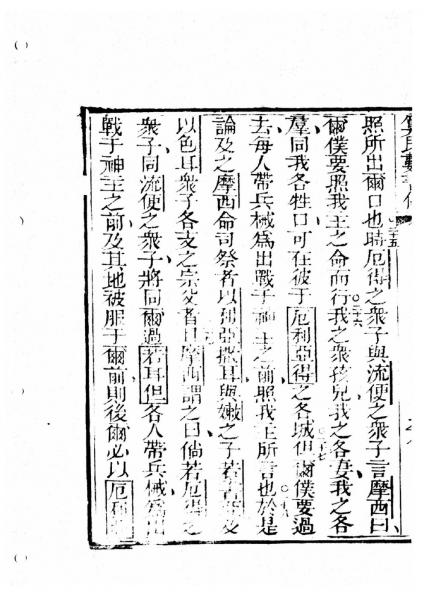 照所出爾口也時厄得之衆子與流便之衆子言摩西曰
爾僕要照我主之命而行我之衆孩兒我之各妻我之各
羣同我各牲口可在彼于厄利亞得之各城但爾僕要過
去每人帶兵械爲出戰于神主之前照我主所言也於是
論及之摩西命司祭者以利亞撒耳與嫩之子若書亞及
以色耳衆子各支之宗父者且摩西謂之曰倘若厄得之
衆子同流便之衆子將同爾過若耳但各人帶兵械爲出
戰于神主之前及其地被服于爾前則後爾必以厄利